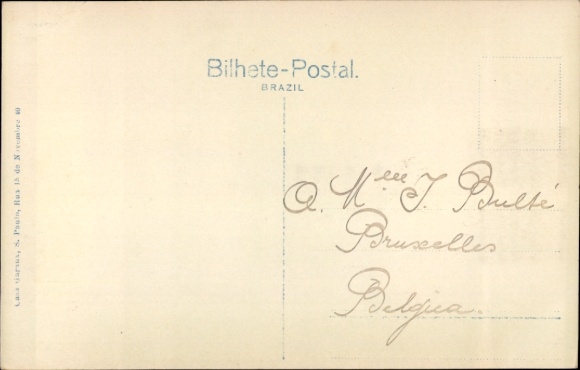 Bilhete-Postal.
BRAZIL
A. Mlle J. Bulté
Bruxelles
Belgica.
Casa Garaux, S. Paulo, Rua 15 de Novembro 40